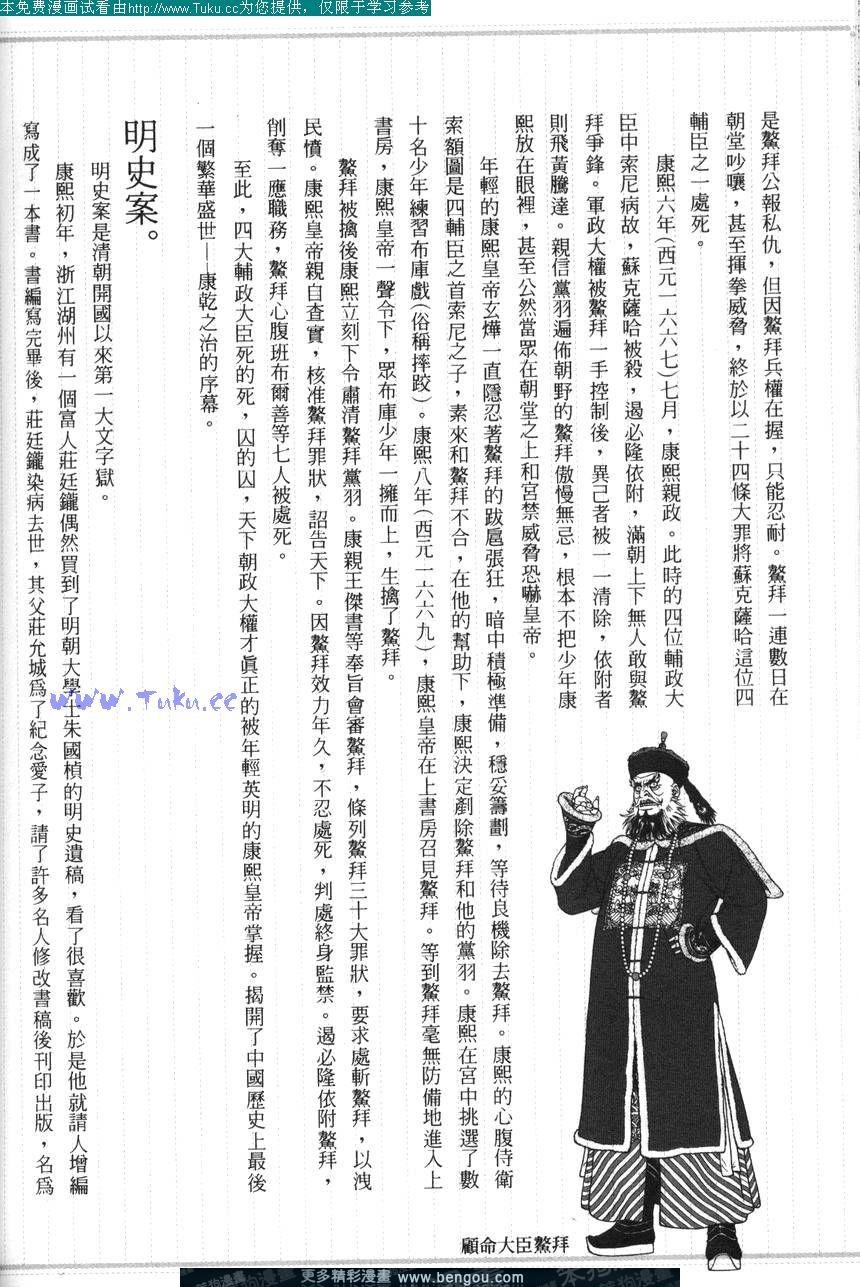 本免费漫画试看由http://www.Tuku.cc为您提供，仅限于学习参考
是鰲拜公報私仇，但因鰲拜兵權在握，只能忍耐。鰲拜一連數日在
朝堂吵嚷，甚至揮拳威脅，終於以二十四條大罪將蘇克薩哈這位四
輔臣之一處死。
康熙六年(西元一六六七)七月，康熙親政。此時的四位輔政大
臣中索尼病故，蘇克薩哈被殺，遏必隆依附，滿朝上下無人敢與鰲
拜爭鋒。軍政大權被鰲拜一手控制後，異己者被一一清除，依附者
則飛黃騰達。親信黨羽遍佈朝野的鰲拜傲慢無忌，根本不把少年康
熙放在眼裡，甚至公然當眾在朝堂之上和宮禁威脅恐嚇皇帝。
年輕的康熙皇帝玄燁一直隱忍著鰲拜的跋扈張狂，暗中積極準備，穩妥籌劃，等待良機除去鰲拜。康熙的心腹侍衛
索額圖是四輔臣之首索尼之子，素來和鰲拜不合，在他的幫助下，康熙決定剷除鰲拜和他的黨羽。康熙在宮中挑選了數
十名少年練習布庫戲(俗稱摔跤)。康熙八年(西元一六六九)，康熙皇帝在上書房召見鰲拜。等到鰲拜毫無防備地進入上
書房，康熙皇帝一聲令下，眾布庫少年一擁而上，生擒了鰲拜。
鰲拜被擒後康熙立刻下令肅清鰲拜黨羽。康親王傑書等奉旨會審鰲拜，條列鰲拜三十大罪狀，要求處斬鰲拜，以洩
民憤。康熙皇帝親自查實，核准鰲拜罪狀，詔告天下。因鰲拜效力年久，不忍處死，判處終身監禁。遏必隆依附鰲拜，
削奪一應職務，鰲拜心腹班布爾善等七人被處死。
至此，四大輔政大臣死的死，囚的囚，天下朝政大權才真正的被年輕英明的康熙皇帝掌握。揭開了中國歷史上最後
一個繁華盛世——康乾之治的序幕。
明史案。
明史案是清朝開國以來第一大文字獄。
康熙初年，浙江湖州有一個富人莊廷鑨偶然買到了明朝大學士朱國楨的明史遺稿，看了很喜歡。於是他就請人增編
寫成了一本書。書編寫完畢後，莊廷鑨染病去世，其父莊允城為了紀念愛子，請了許多名人修改書稿後刊印出版，名為
www.Tuku.cc
顧命大臣鰲拜
更多精彩漫畫 www.bengou.com